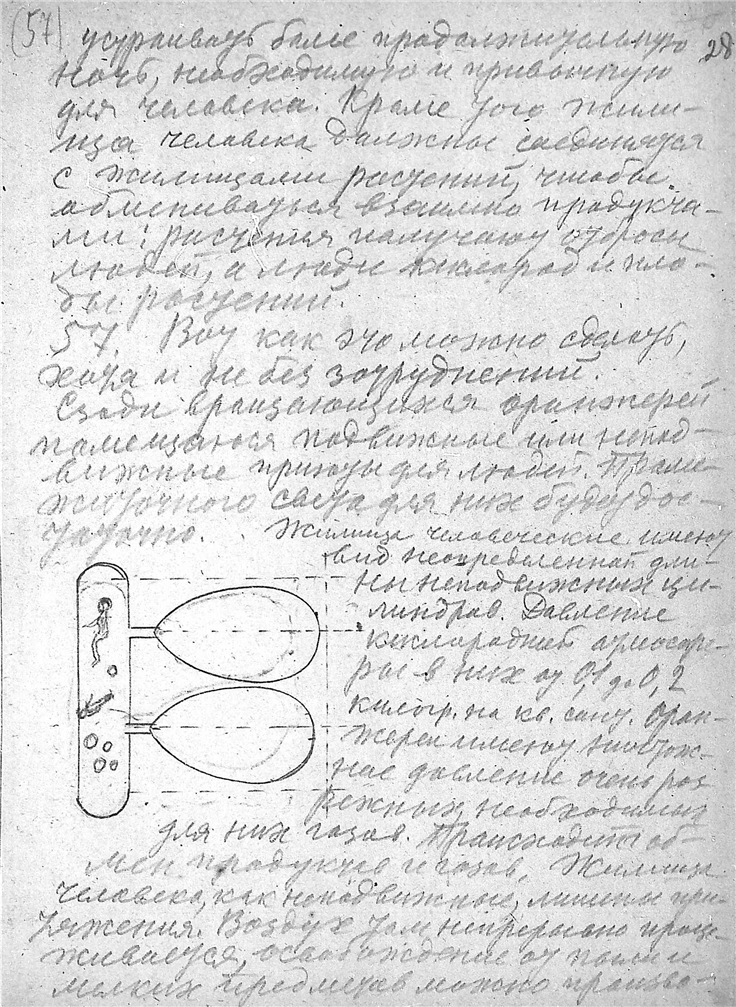 (57) устраивать более продолжительную 28
ночь, необходимую и привычную
для человека. Кроме того жили-
ща человека должны соединяться
с жилищами растений, чтобы
обмениваться взаимно продукта-
ми: растения получают отбросы
людей, а люди кислород и пло-
ды растений.
57. Вот как это можно сделать,
хотя и не без затруднений.
Сзади вращающихся оранжерей
помещаются подвижные или непод-
вижные приюты для людей. Проме-
жуточного света для них будет дос-
таточно. Жилища человеческие имеют
вид неопределенной дли-
ны неподвижных ци-
линдров. Давление
кислородной атмосфе-
ры в них от 0,1 до 0,2
килогр. на кв. сант. Оран-
жереи имеют ничтож-
ное давление очень раз
режных, необходимых
для них газов. Происходит об-
мен продуктов и газов. Жилища
человека, как неподвижные, лишены при-
тяжения. Воздух там непрерывно проце-
живается, освобождение от пыли и
мелких предметов можно произво-